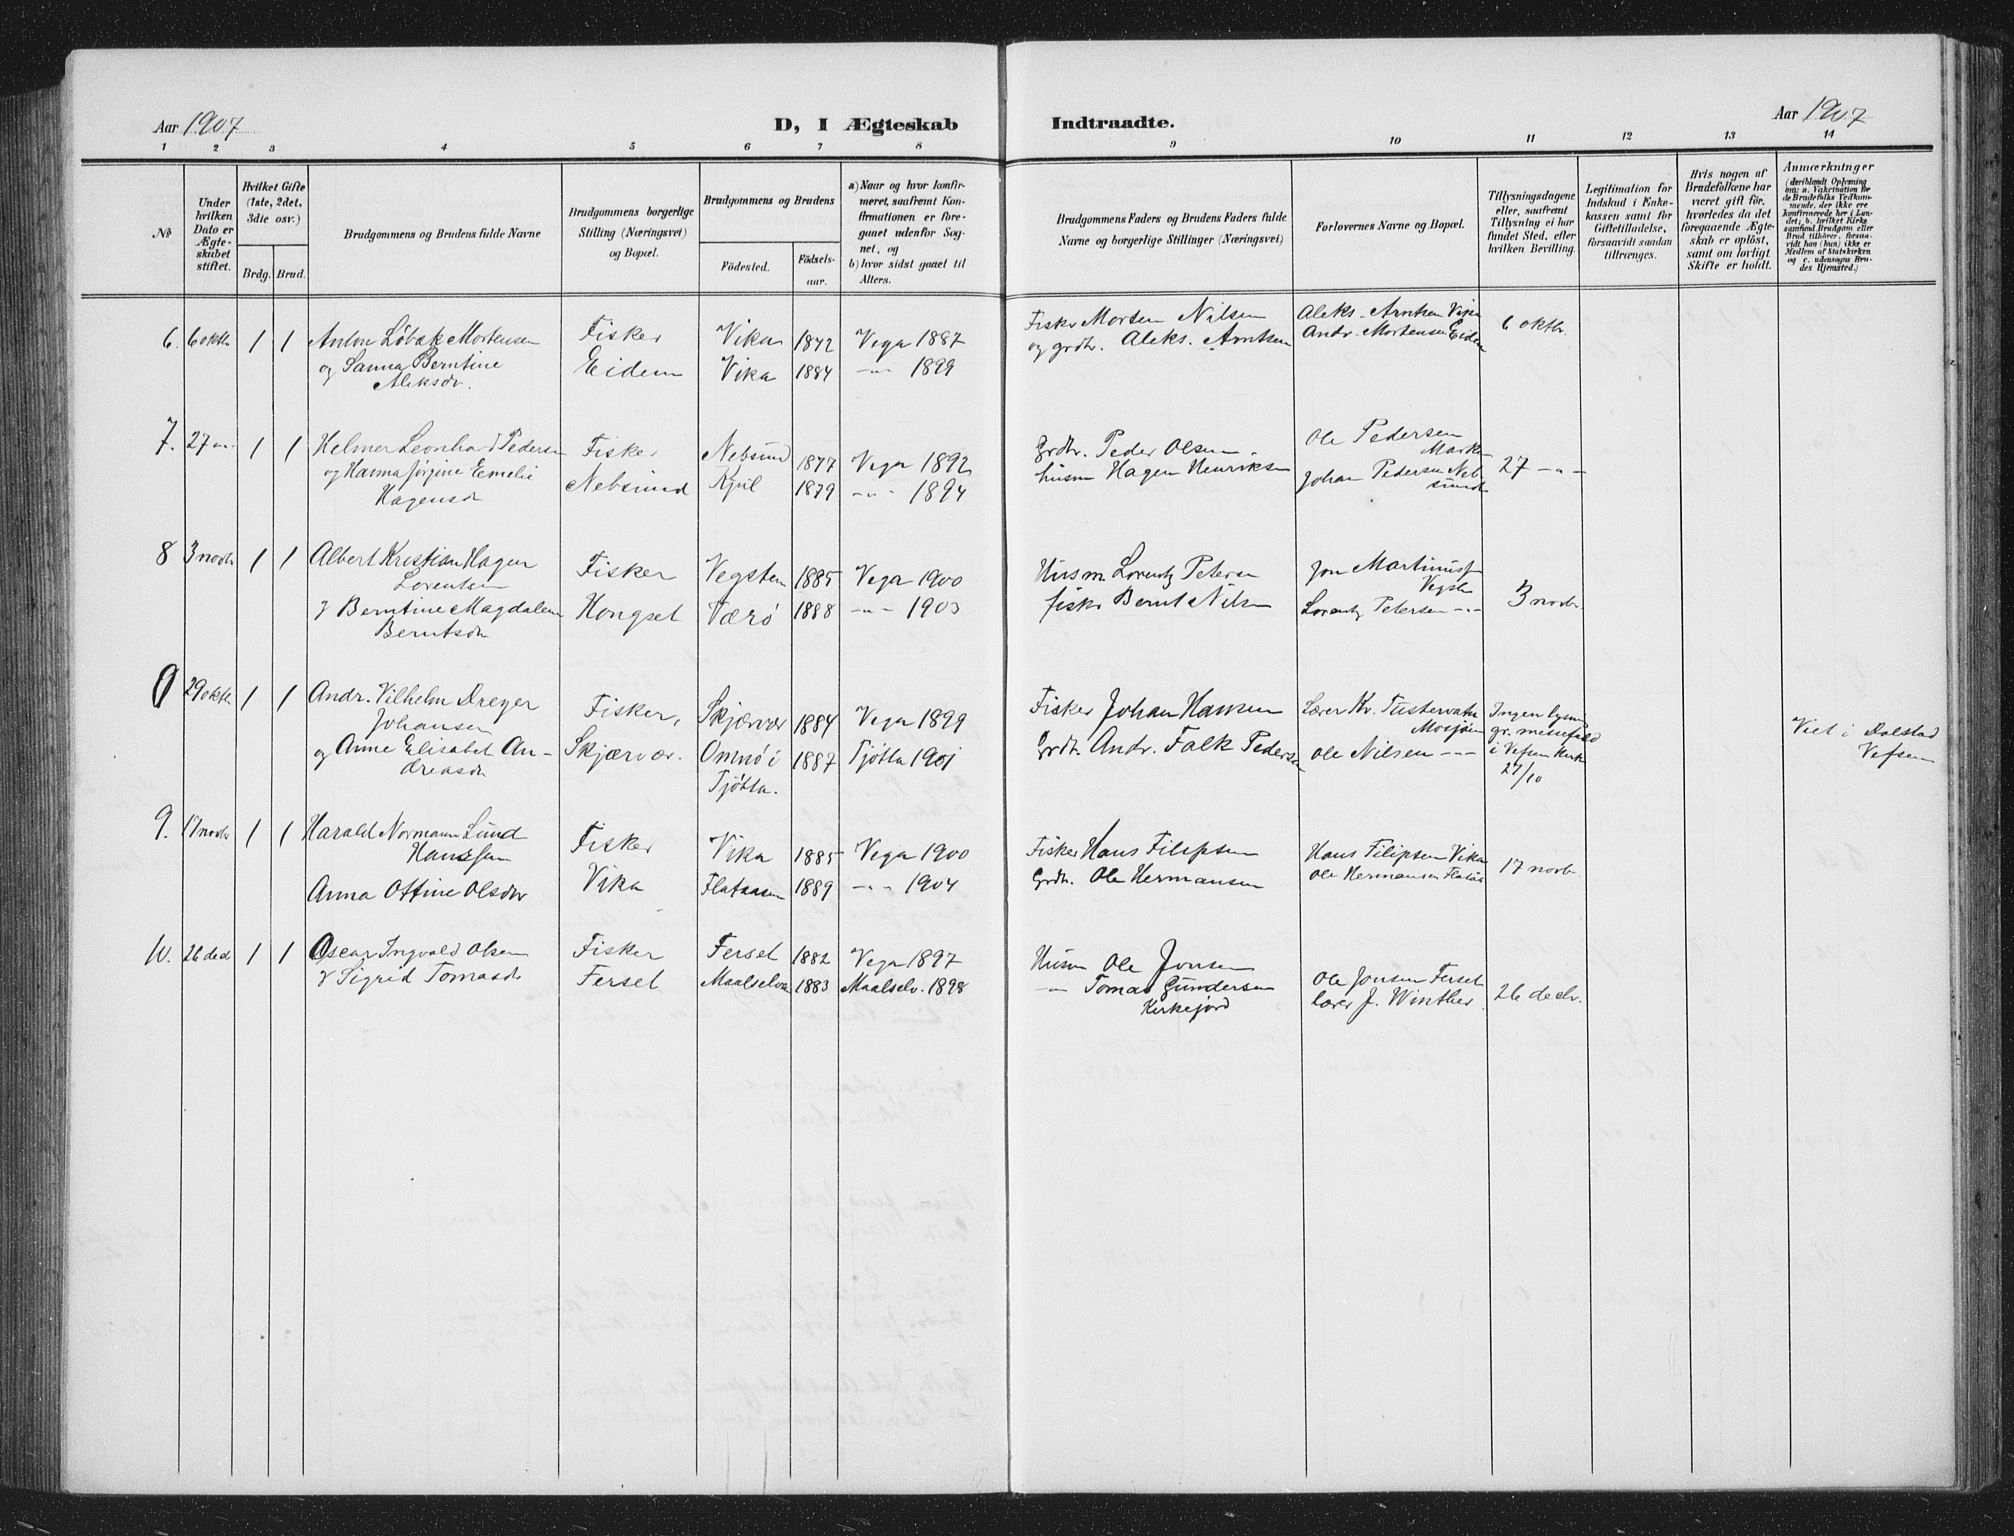 Aar 1907
D, I Ægteskab
Indtraadte.
Aar 1907
1 2 3 4 5 6 7 8 9 10 11 12 13 14
№
Under hvilken Dato er Ægteskabet stiftet.
Hvilket Gifte (1ste, 2det, 3die osv.)
Brdg. Brud.
Brudgommens og Brudens fulde Navne
Brudgommens borgerlige Stilling (Næringsvei) og Bopæl.
Brudgommens og Brudens
Fødested.
Fødselsaar.
a) Naar og hvor konfirmeret, saafremt Konfirmationen er foregaaet udenfor Sognet, og
b) hvor sidst gaaet til Alters.
Brudgommens Faders og Brudens Faders fulde Navne og borgerlige Stillinger (Næringsvei)
Forlovernes Navne og Bopæl.
Tillysningsdagene eller, saafremt Tillysning ei har fundet Sted, efter hvilken Bevilling.
Legitimation for Indskud i Enkekassen samt for Giftetilladelse, forsaavidt saadan tiltrænges.
Hvis nogen af Brudefolkene har været gift før, hvorledes da det foregaaende Ægteskab er opløst, samt om lovligt Skifte er holdt.
Anmærkninger
(deriblandt Oplysning om: a. Vakcination for de Brudefolks Vedkommende, der ikke ere konfirmerede her i Landet; b. hvilket Kirkesamfund Brudgom eller Brud tilhører, forsaavidt han (hun) ikke er Medlem af Statskirken og c. udensogns Brudes Hjemsted.)
6. 6 oktb 1 1 Anton Løbak Mortensen Fisker Vika 1872 Vega 1887 Fisker Morten Nilsen Aleks. Arntsen Vika 6 oktbr.
og Sanna Berntine Eidem Vika 1884 -"- 1899 og grdbr. Aleks. Arntsen Andr. Mortensen Eidem
Aleksdr.
7. 27 -"- 1 1 Helmer Leonhard Pedersen Fisker Nebsund 1877 Vega 1892 Grdbr. Peder Olsen Ole Pedersen Marken 27 -"-
og Hanna Jørgine Emelie Nebsund Kjul 1879 -"- 1894 husm Hagen Henriksen Johan Pedersen Nebsund
Hagensdr
8 3 novb 1 1 Albert Kristian Hagen Fisker Vegsten 1885 Vega 1900 Husm Lorentz Petersen Jon Martinussen Vegstn 3 novbr.
Lorentsen
& Berntine Magdalene Hongset Værø 1888 -"- 1903 fisker Bernt Nilsen Lorentz Petersen -"-
Berntsdr
9 29 oktb 1 1 Andr. Vilhelm Dreyer Fisker, Skjærvær 1884 Vega 1899 Fisker Johan Hansen Lærer Kr. Tustervatn Mosjøen Ingen lysning
Johansen
og Anne Elisabet Andreasdr Skjærvær. Omnø i Tjøtta. 1887 Tjøtta 1901 Grdb. Andr. Falk Pedersen Ole Nilsen -"- i Vefsen Kirke 27/10 Viet i Dolstad Vefsen
9. 17 novbr 1 1 Harald Normann Lund Fisker Vika 1885 Vega 1900 Fisker Hans Filipsen Hans Filipsen Vika 17 novbr.
Hansen
Anna Ottine Olsdtr Vika Flataasen 1889 -"- 1904 Grdbr. Ole Hermansen Ole Hermansen Flataas
10. 26 decb 1 1 Oscar Ingvald Olsen Fisker Ferset 1882 Vega 1897 Husm Ole Jonsen Ole Jonsen Ferset 26 decbr.
& Sigrid Tomasdr Ferset Maalselven 1883 Maalselv. 1898 -"- Tomas Gundersen Kirkejord lærer J. Winther